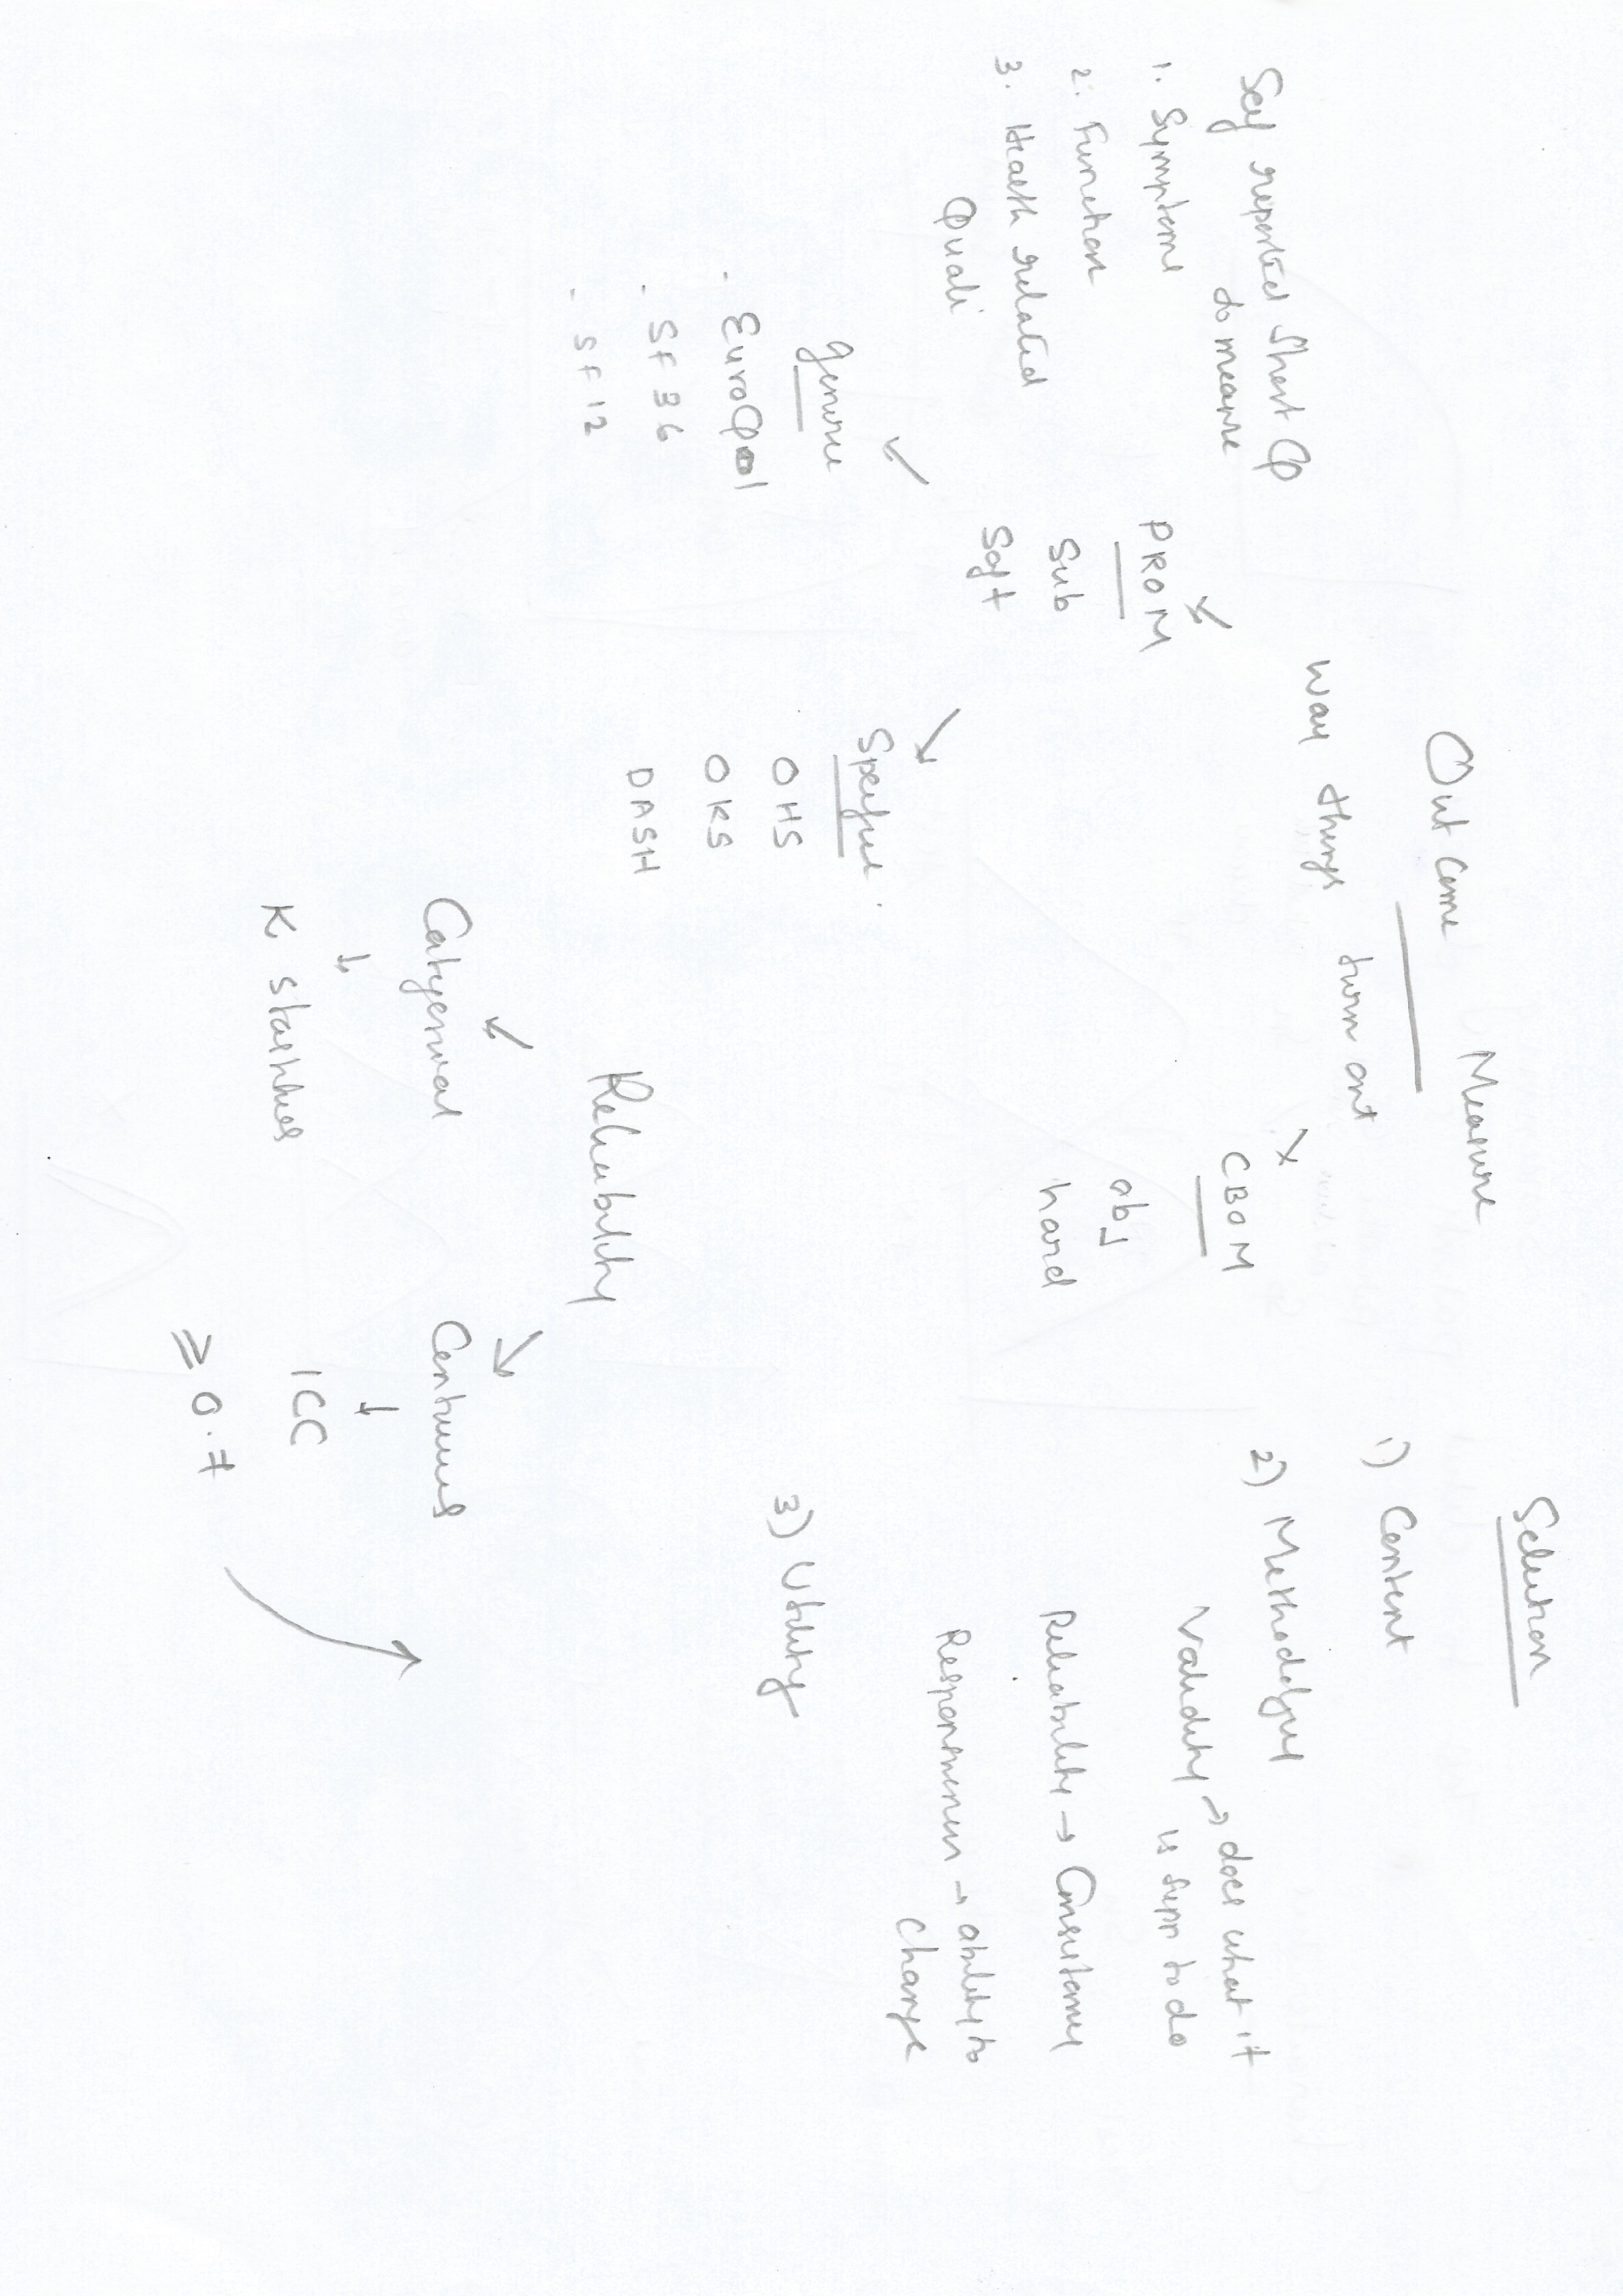 Out Come Measure
way things turn out
PROM
Sub
Soft
CBOM
obj
hard
Self reported short Q
to measure
1. Symptoms
2. Function
3. Health related
Quali
generic
. EuroQol
. SF 36
. SF 12
Specific
OHS
OKS
DASH
Selection
1) Content
2) Methodology
Validity → does what it
is supp to do
Reliability → Consistency
Responsiveness → ability to
change
3) Utility
Reliability
Categorical
↓
K statistics
Continuous
↓
ICC
≥ 0.7